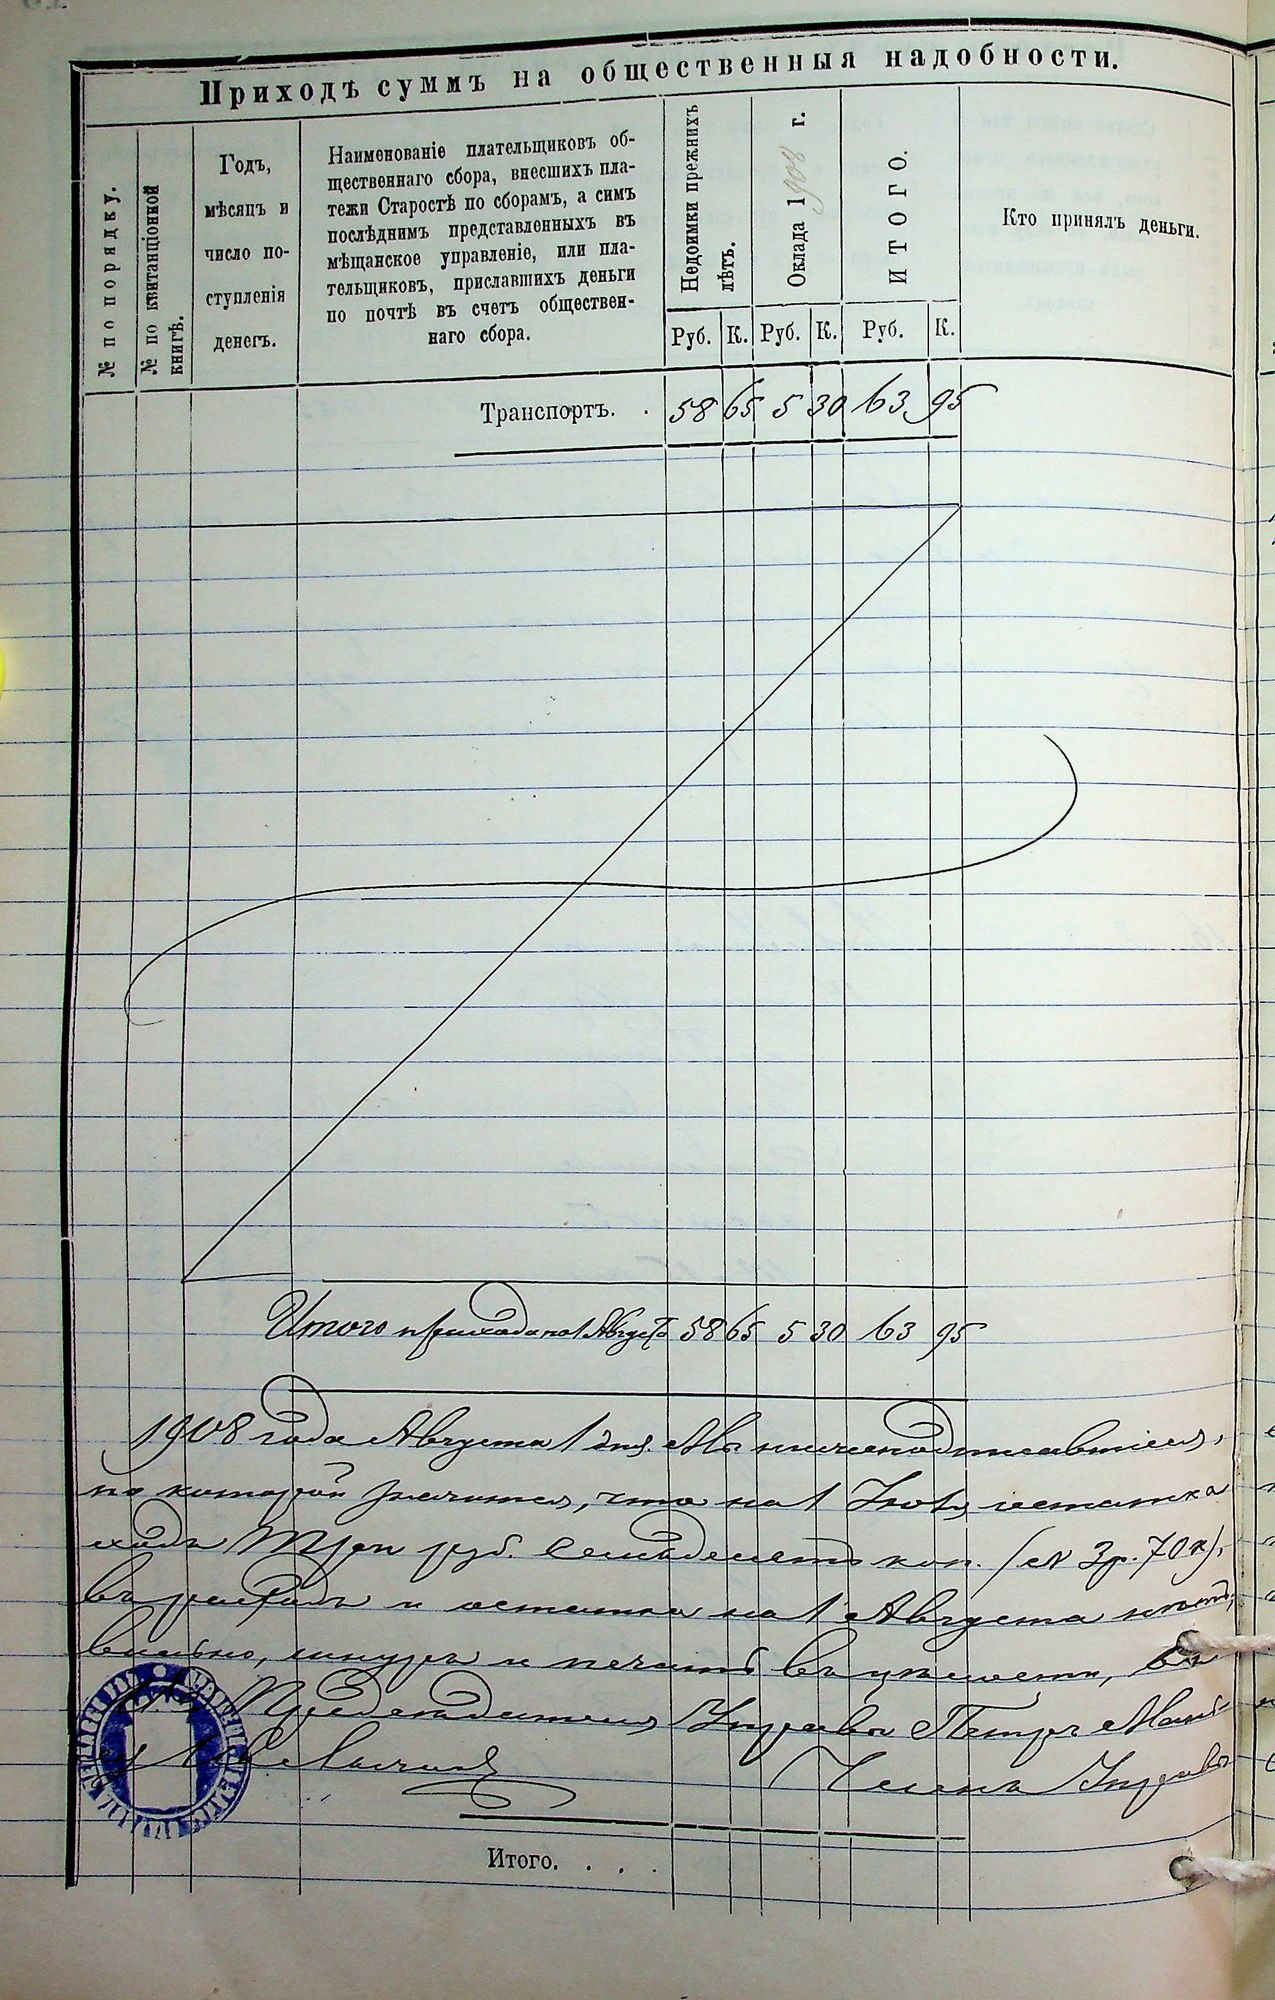 Приходъ суммъ на общественныя надобности.
№ по порядку.
№ по квитанціонной
книгѣ.
Годъ,
мѣсяцъ и
число по-
ступленія
денегъ.
Наименованіе плательщиковъ об-
щественнаго сбора, внесшихъ пла-
тежи Старостѣ по сборамъ, а симъ
послѣднимъ представленныхъ въ
мѣщанское управленіе, или пла-
тельщиковъ, приславшихъ деньги
по почтѣ въ счетъ обществен-
наго сбора.
Недоимки прежнихъ
лѣтъ.
Оклада 1908 г.
ИТОГО.
Кто принялъ деньги.
Руб. К. Руб. К. Руб. К.
Транспортъ. . 58 65 5 30 63 95
Итого прихода на 1 Августа 58 65 5 30 63 95
1908 года Августа 1 дня. Мы нижеподписавшіеся,
по которой значится, что на 1 остатка
Три руб. Семьдесятъ коп. (3 р. 70 к),
въ расходъ и остатка на 1 Августа
шнуръ и печать въ цѣлости,
Предсѣдателя Управы Петръ
Членъ Управы
Итого. . . .